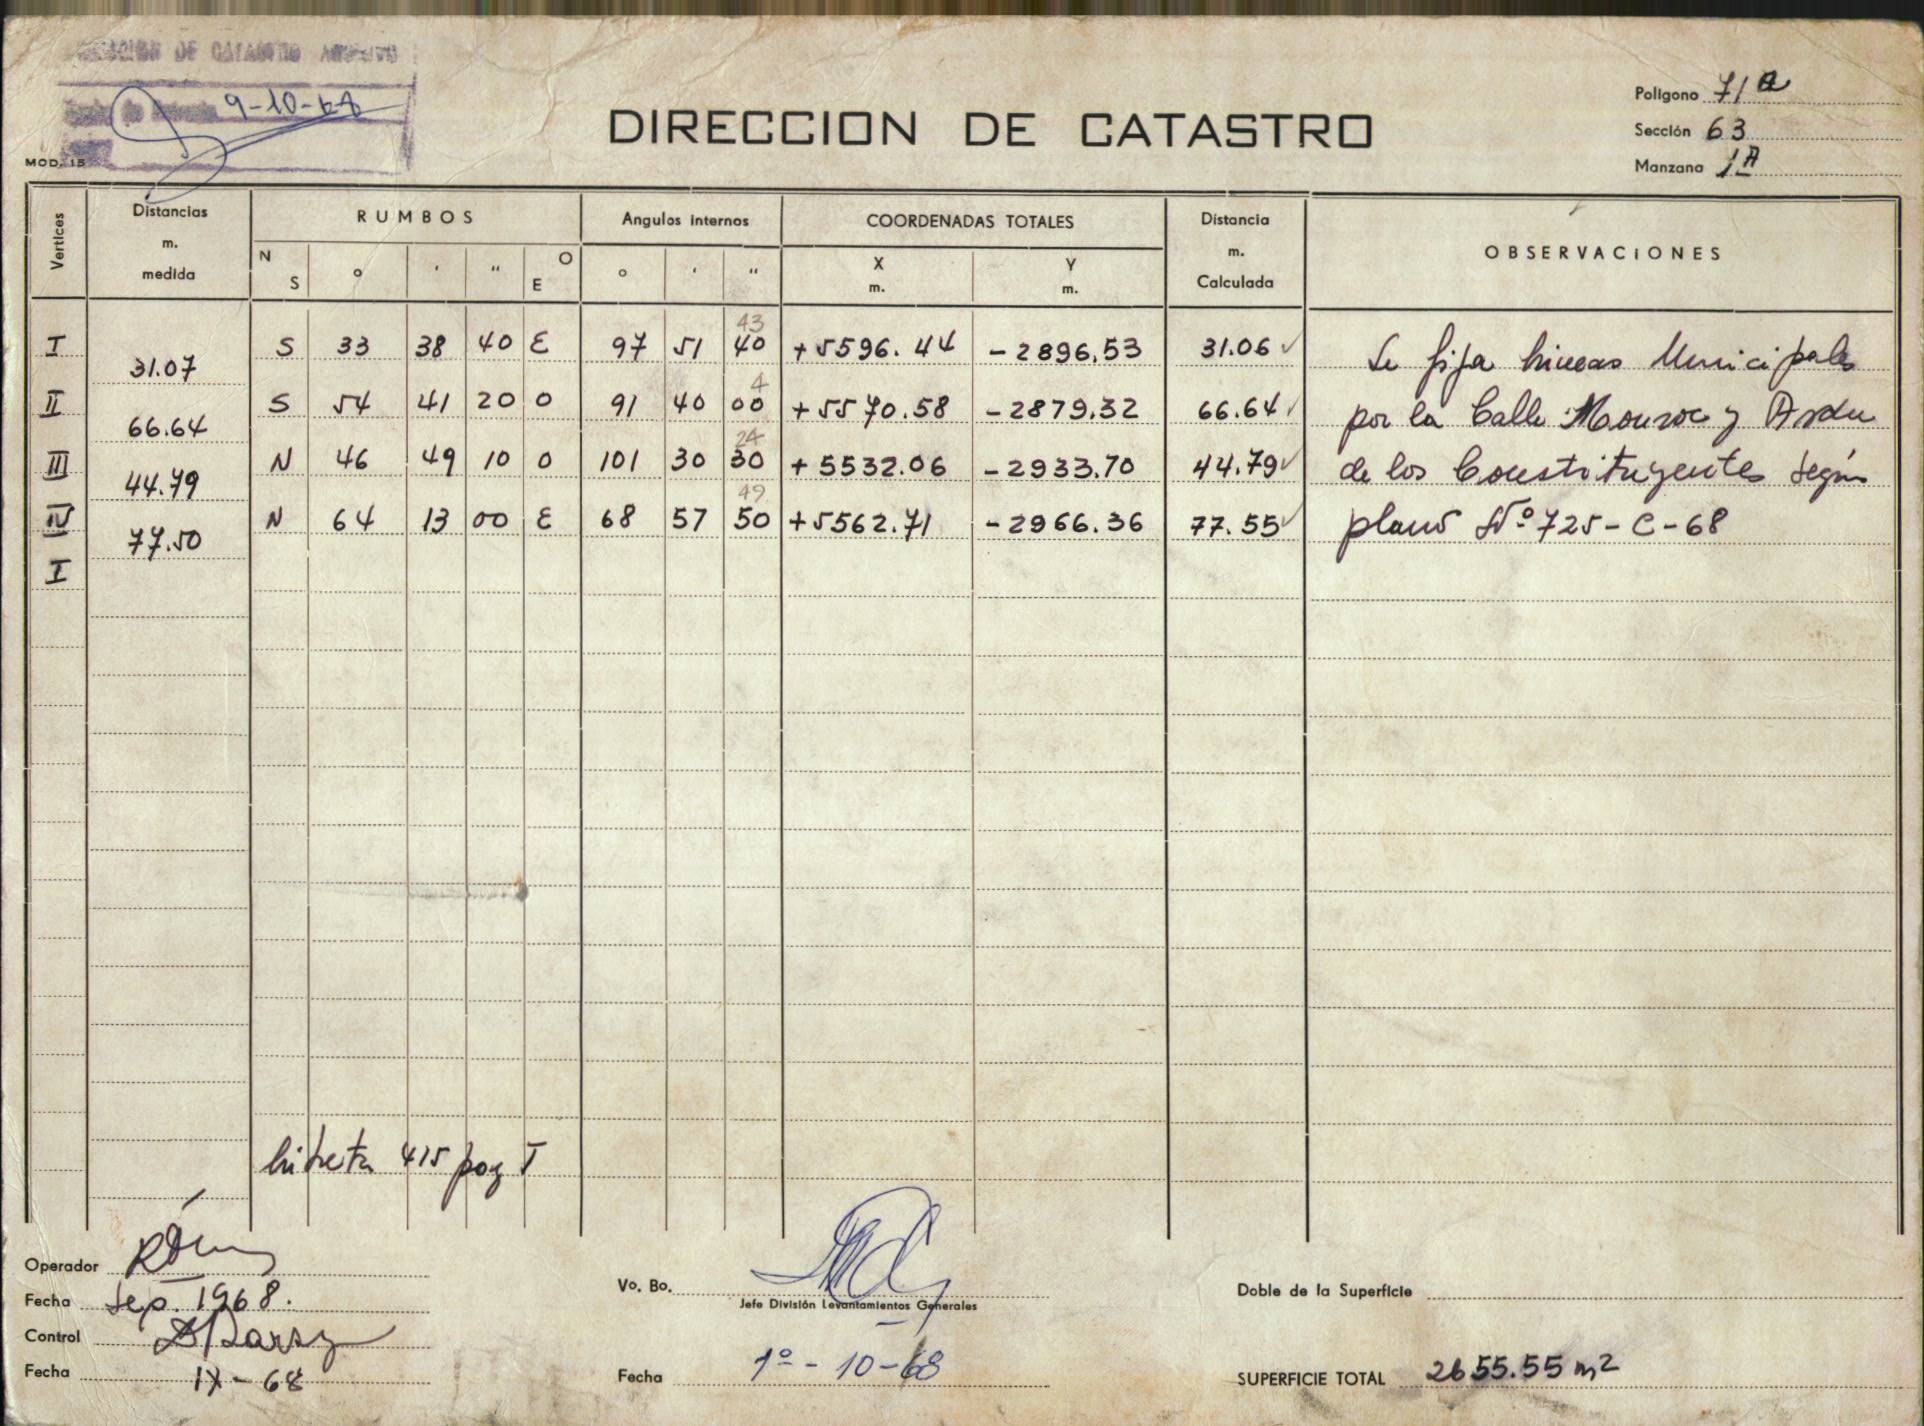 DE CATASTRO
9-10-68
MOD. 15
DIRECCION DE CATASTRO
Polígono 71 A
Sección 63
Manzana 1A
Vertices
Distancias
m.
medida
RUMBOS
N S ° ' " O E
Angulos internos
° ' "
COORDENADAS TOTALES
X
m.
Y
m.
Distancia
m.
Calculada
OBSERVACIONES
43
I S 33 38 40 E 97 51 40 +5596.44 -2896.53 31.06 Se fija lineas Municipales
31.07
4
II S 54 41 20 O 91 40 00 +5570.58 -2879.32 66.64 por la Calle Monroe y Avda
66.64
24
III N 46 49 10 O 101 30 30 +5532.06 -2933.70 44.79 de los Constituyentes según
44.79
49
IV N 64 13 00 E 68 57 50 +5562.71 -2966.36 77.55 plano Nº 725-C-68
77.50
I
libreta 415 pag I
Operador
Fecha Sep. 1968.
Control
Fecha IX-68
Vo. Bo.
Jefe División Levantamientos Generales
Fecha 1º-10-68
Doble de la Superficie
SUPERFICIE TOTAL 2655.55 m2